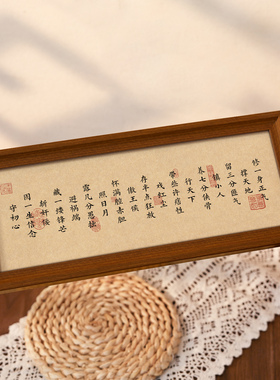 修一身正气
撑天地
留三分匪气
镇小人
养七分侠骨
行天下
带些许痞性
戏红尘
存半点狂放
傲王侯
怀满腔赤胆
照日月
露几分愚拙
避祸端
藏一缕锋芒
斩奸佞
固一生信念
守初心